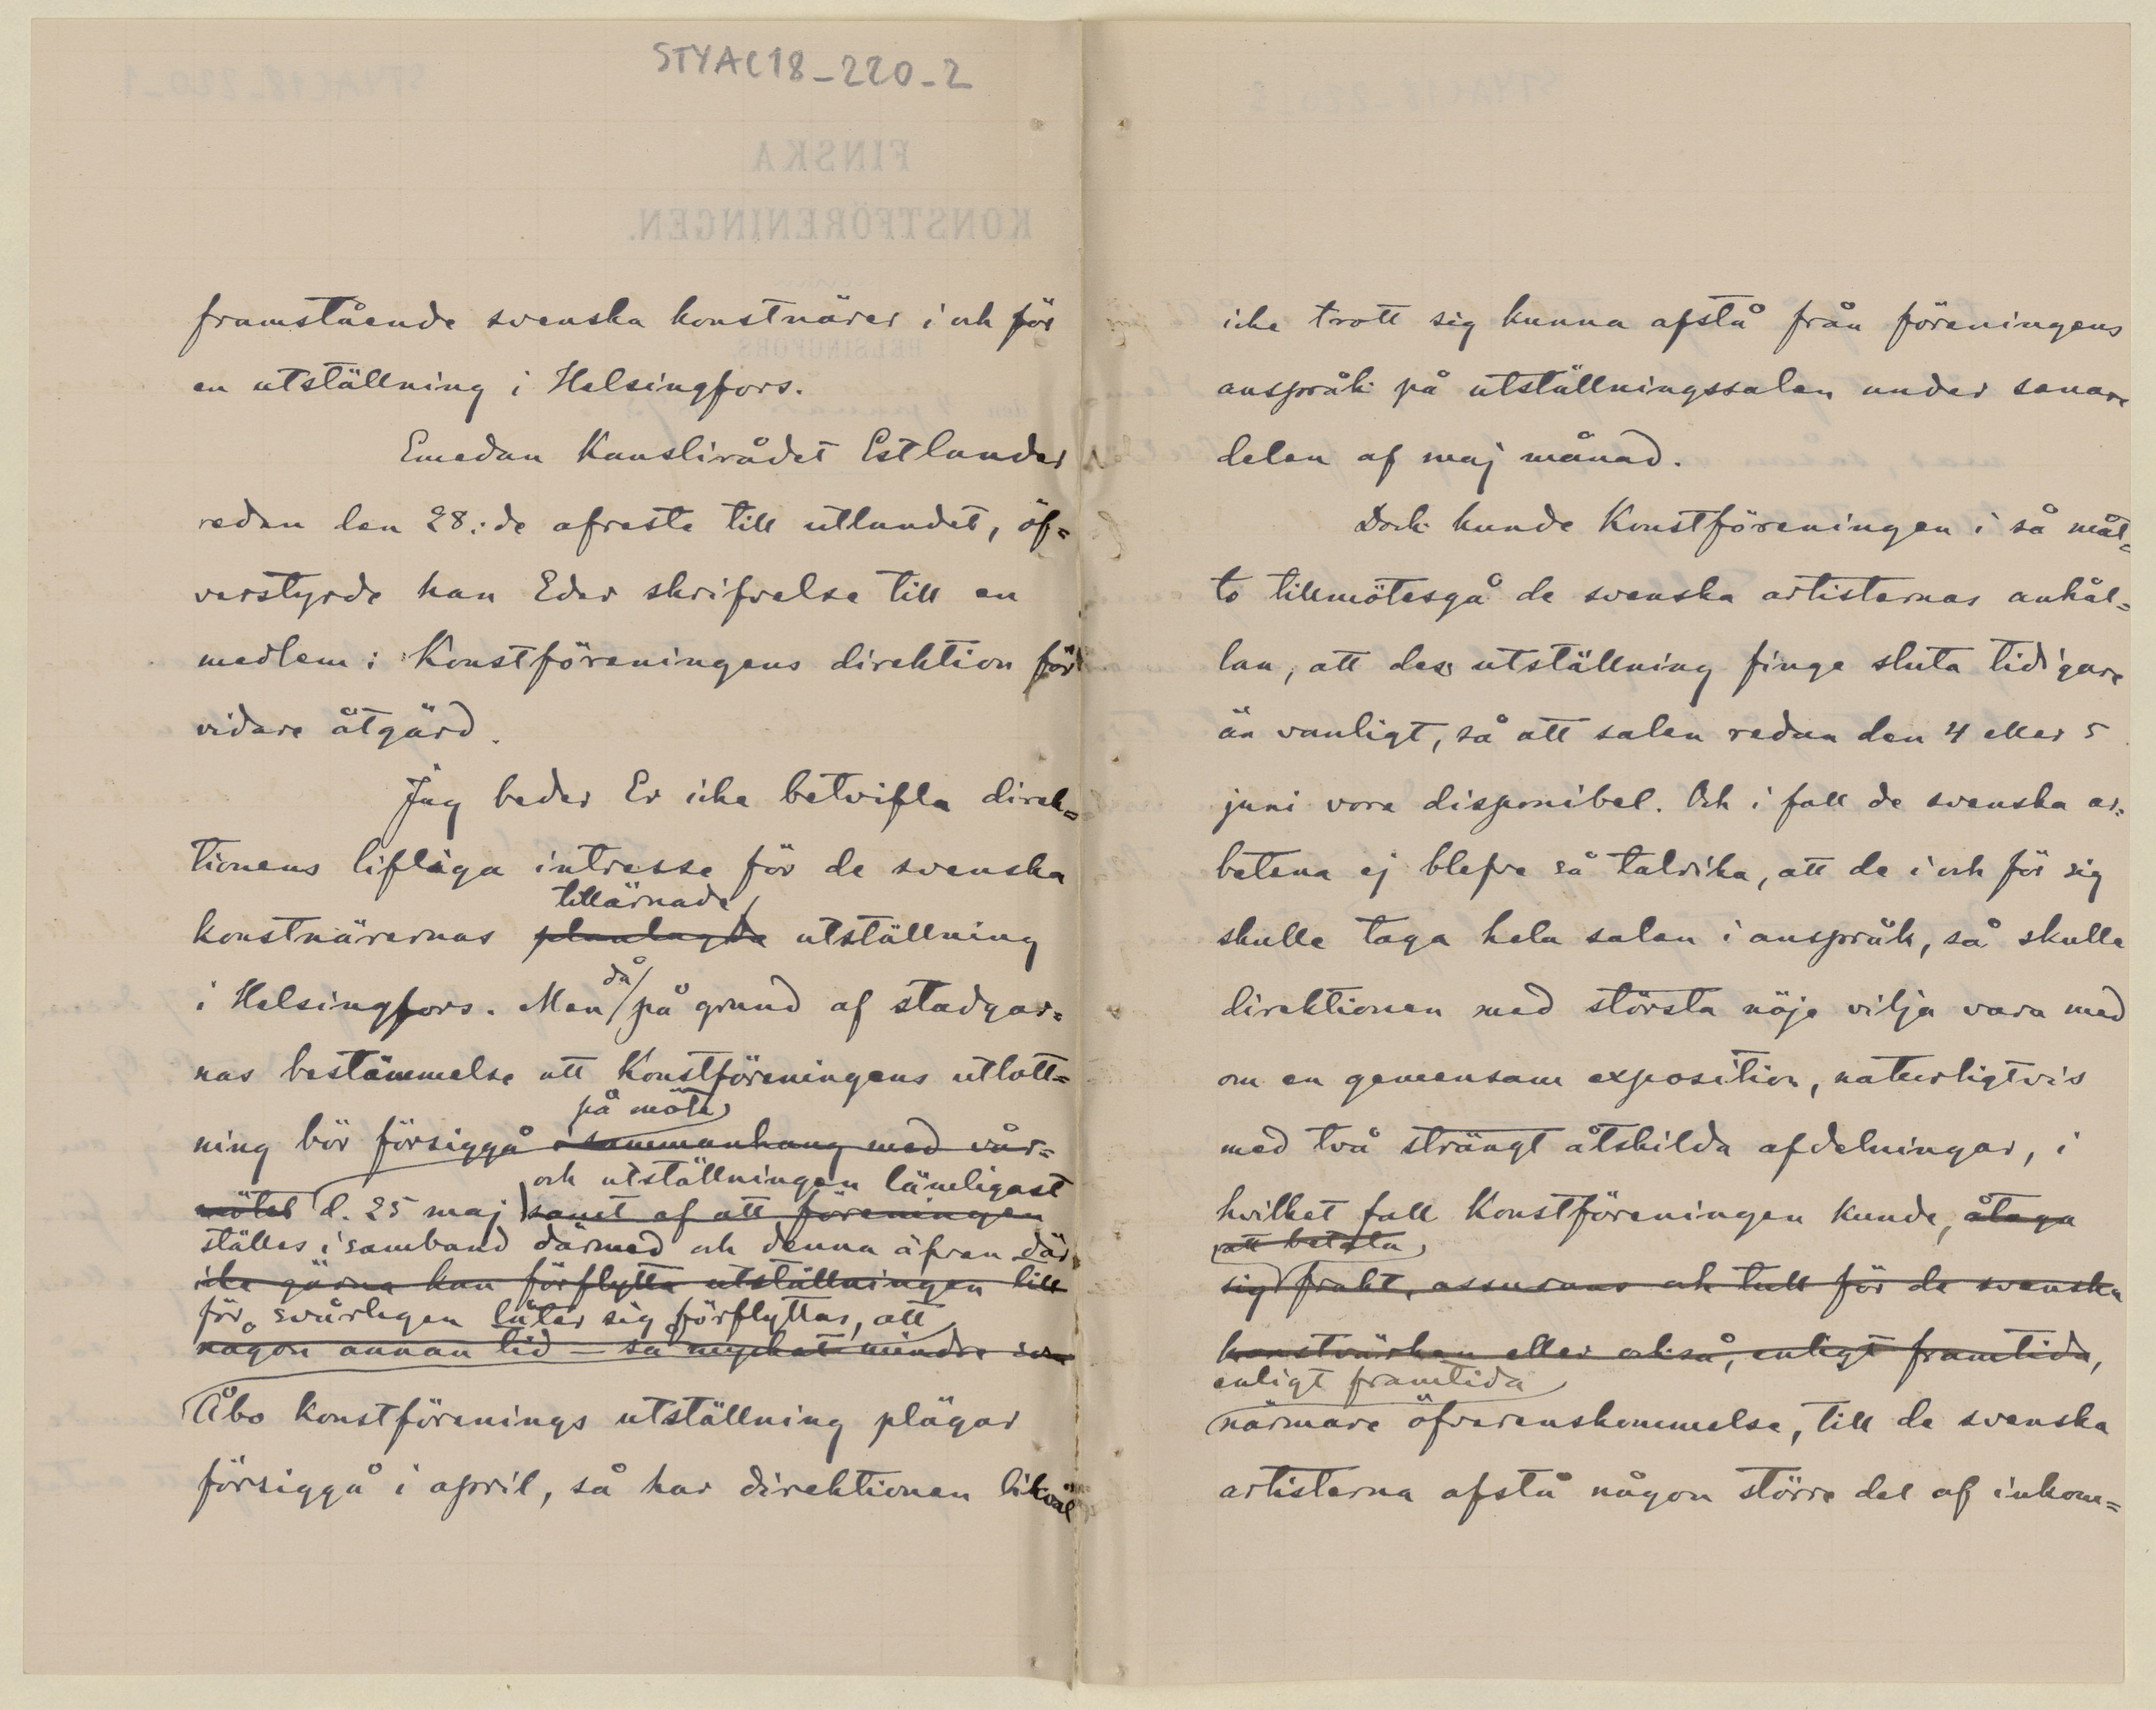 STYAC18_220_2
framstående svenska konstnärer i och för
en utställning i Helsingfors.
Emedan Kanslirådet Estlander
redan den 28:de afreste till utlandet, öf=
verstyrde han Eder skrifvelse till en
medlem i Konstföreningens direktion för
vidare åtgärd.
Jag beder Er icke betvifla direk=
tionens lifliga intresse för de svenska
tillärnade
konstnärernas planlagda utställning
då
i Helsingfors. Men på grund af stadgar=
nas bestämmelse att Konstföreningens utlott=
på möte
ning bör försiggå i sammanhang med vår=
och utställningen lämligast
mötet d. 25 maj samt af att föreningen
ställes i samband därmed och denna äfven där
icke gärna kan förflytta utställningen till
för svårligen låter sig förflyttas, att
någon annan tid – så mycket mindre som
Åbo Konstförenings utställning plägar
försiggå i april, så har direktionen likväl
icke trott sig kunna afstå från föreningens
anspråk på utställningssalen under senare
delen af maj månad.
Dock kunde Konstföreningen i så måt=
to tillmötesgå de svenska artisternas anhål=
lan, att dess utställning finge sluta tidigare
än vanligt, så att salen redan den 4 eller 5
juni vore disponibel. Och i fall de svenska ar=
betena ej blefve så talrika, att de i och för sig
skulle taga hela salen i anspråk, så skulle
direktionen med största nöje vilja vara med
om en gemensam exposition, naturligtvis
med två strängt åtskilda afdelningar, i
hvilket fall Konstföreningen kunde, åtaga
att betala
sig frakt, assurans och tull för de svenska
konstvärken eller också, enligt framtida,
enligt framtida
närmare öfverenskommelse, till de svenska
artisterna afstå någon större del af inkom=